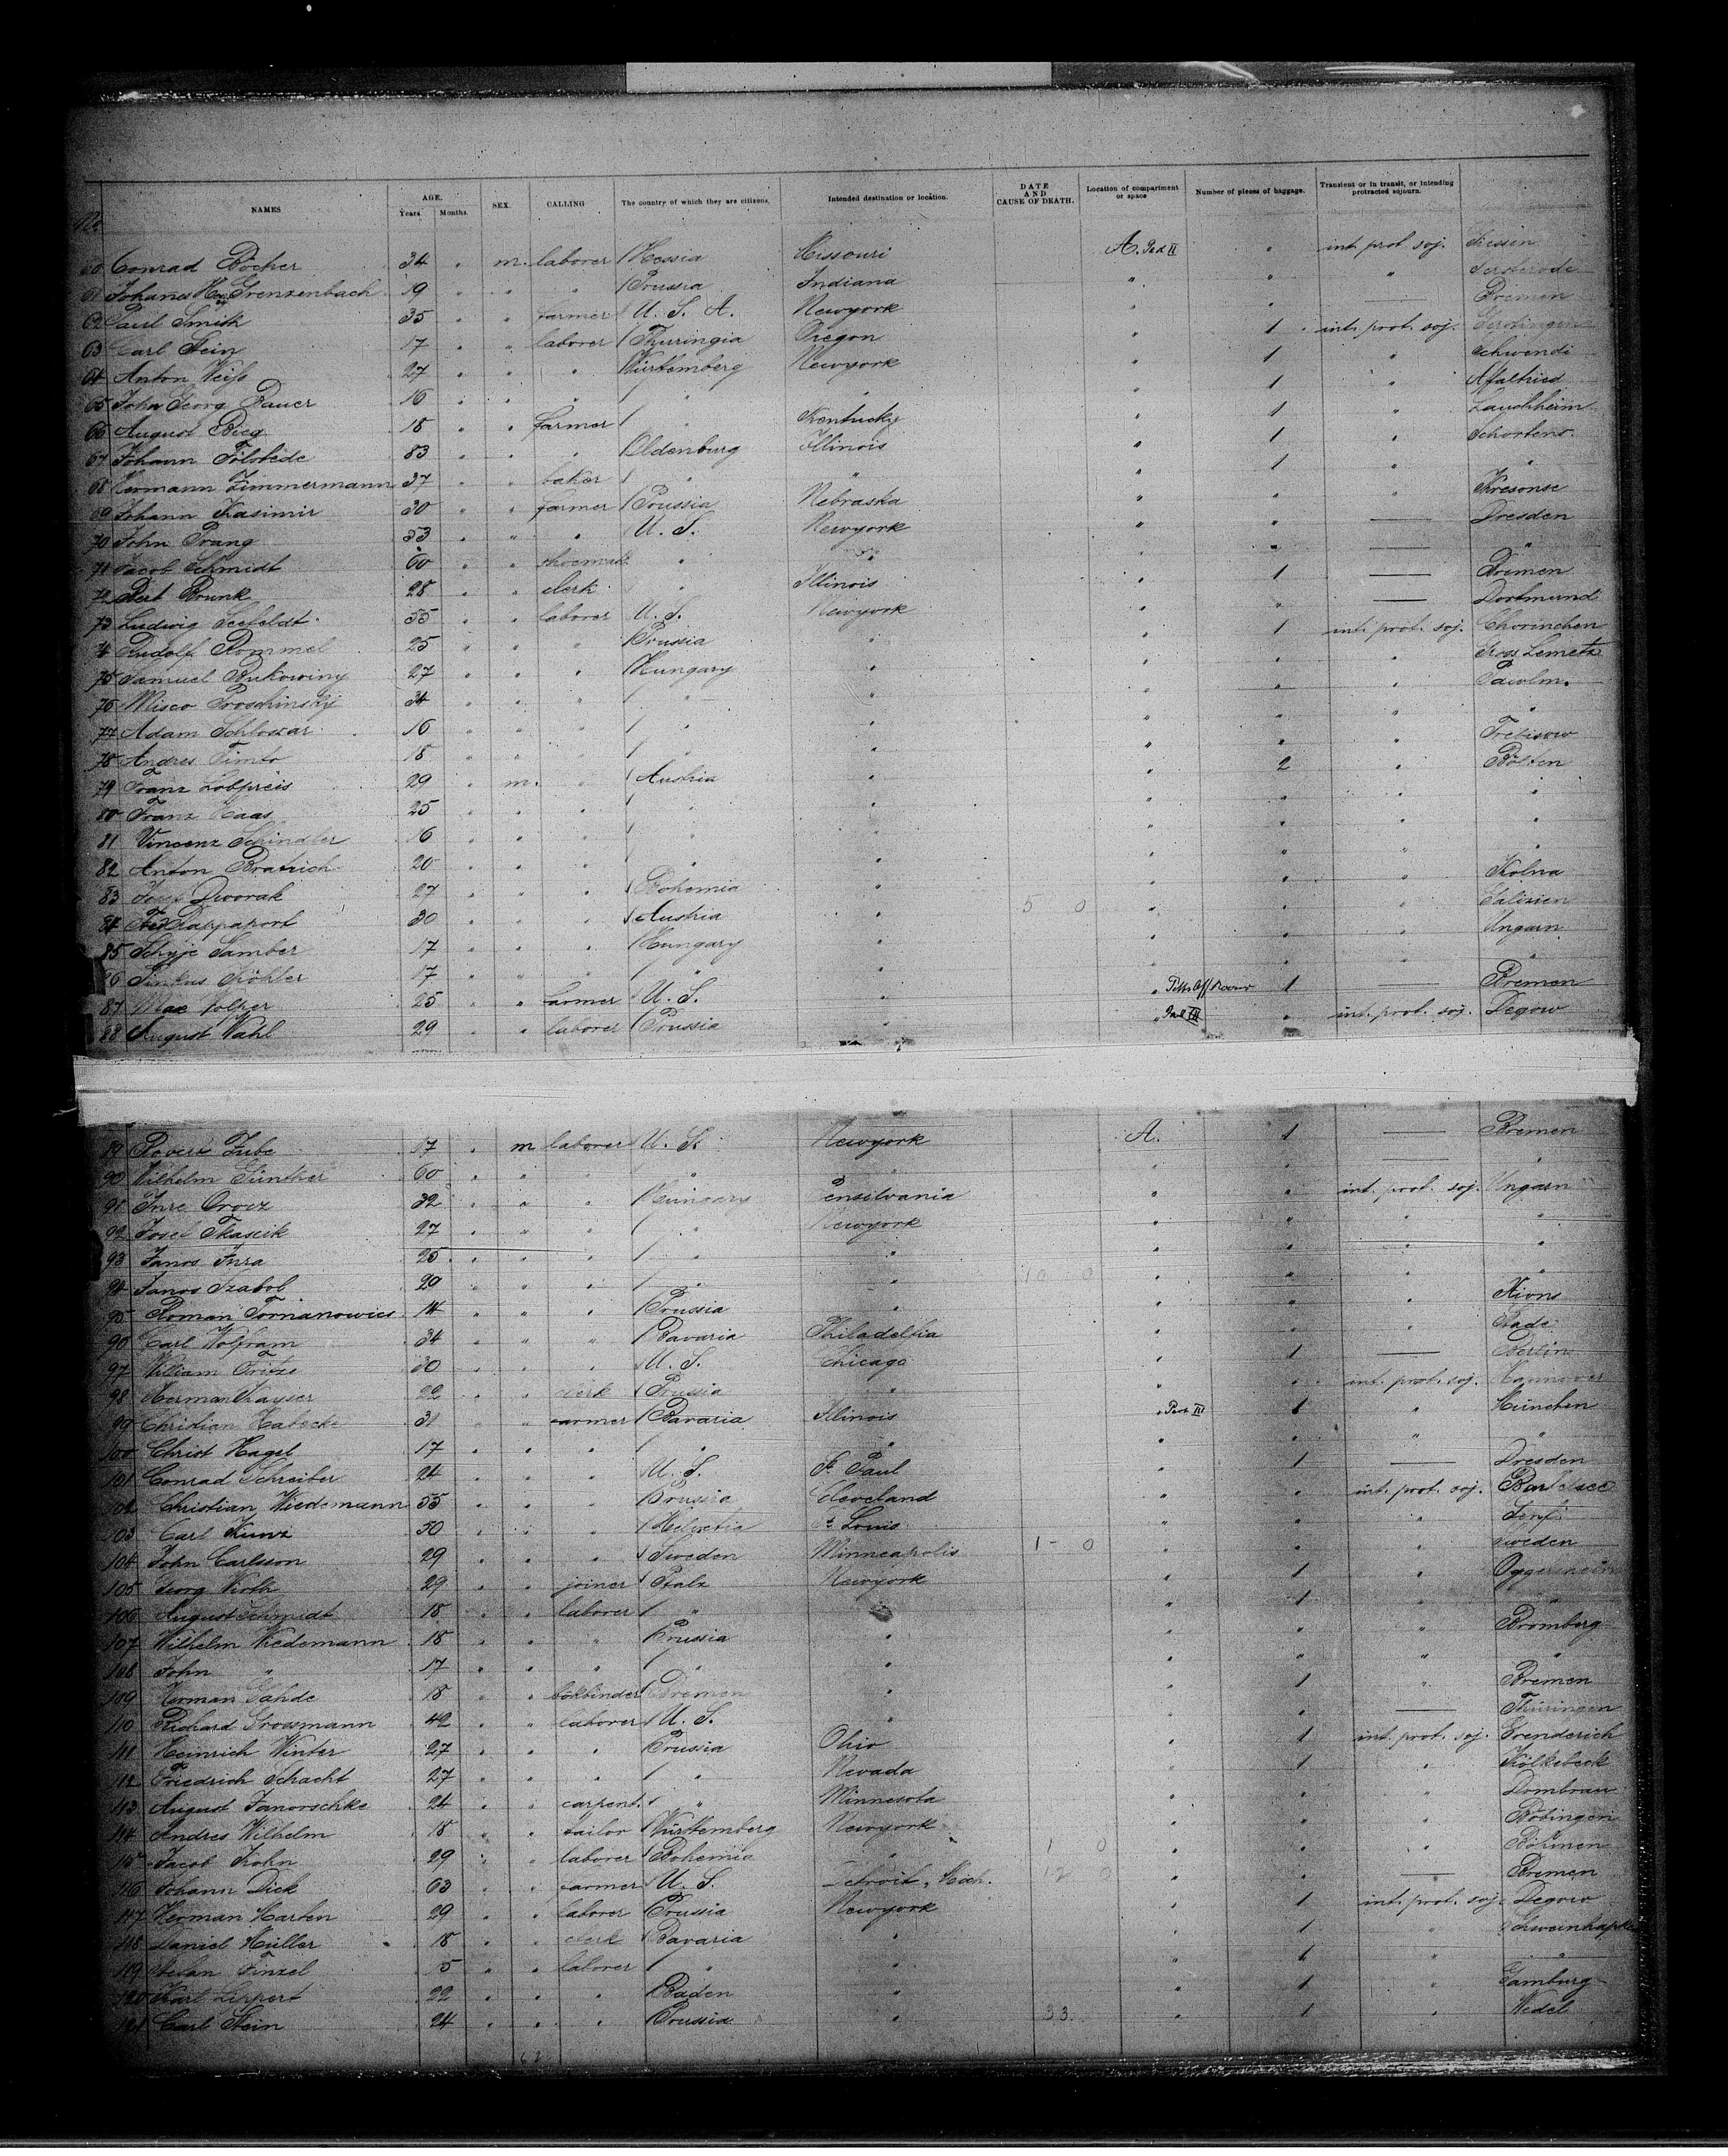 NAMES AGE. Years Months. SEX. CALLING The country of which they are citizens. Intended destination or location. DATE AND CAUSE OF DEATH. Location of compartment or space Number of pieces of baggage. Transient or in transit, or intending protracted sojourn.
60 Conrad Böcker 34 " m. laborer Hessia Missouri A. " int. prot. soj. Giessen
61 Johanes Grenzenbach 19 " " " Prussia Indiana " " "
62 Paul Smith 35 " " farmer U. S. A. Newyork " " — Bremen
63 Carl Stein 17 " " laborer Thuringia Oregon " 1 int. prot. soj. Gerstingen
64 Anton Weiß 27 " " " Würtemberg Newyork " 1 " Schwendi
65 John Georg Bauer 16 " " " " " " 1 "
66 August Bieg 18 " " farmer " Kentucky " 1 " Lauchheim
67 Johann Tölstede 83 " " " Oldenburg Illinois " 1 " Schortens
68 Hermann Zimmermann 37 " " baker " " " 1 " "
69 Johann Kasimir 30 " " farmer Prussia Nebraska " " "
70 John Prang 53 " " " U. S. Newyork " " — Dresden
71 Jacob Schmidt 60 " " shoemak. " " " " — "
72 Bert Brunk 28 " " clerk " Illinois " 1 — Bremen
73 Ludwig Seefeldt 55 " " laborer U. S. Newyork " " — Dortmund
74 Rudolf Rommel 25 " " " Prussia " " 1 int. prot. soj. Chorinchen
75 Samuel Bukowiny 27 " " " Hungary " " " "
76 Misco Proschinsky 34 " " " " " " " "
77 Adam Schloszar 16 " " " " " " " " "
78 Andres Timto 18 " " " " " " " " Trebisow
79 Franz Lobpreis 29 " m. " Austria " " 2 " Pölten
80 Franz Haas 25 " " " " " " " " "
81 Vincenz Schindler 16 " " " " " " " " "
82 Anton Bratrich 20 " " " " " " " " "
83 Josef Dworak 27 " " " Bohemia " " " " Kolna
84 Rappaport 30 " " " Austria " 5 0 " " " Galizien
85 Samber 17 " " " Hungary " " " " Ungarn
86 Pinkus Köhler 17 " " " " " " " " "
87 Max Volger 25 " " farmer U. S. " " 1 — Bremen
88 August Wahl 29 " " laborer Prussia " " " int. prot. soj. Degow
89 Robert Zube 17 " m laborer U. S. Newyork A. 1 — Bremen
90 Wilhelm Günther 60 " " " " " " " — "
91 Imre Orosz 32 " " " Hungary Pensilvania " " int. prot. soj. Ungarn
92 Josef Tkascik 27 " " " " Newyork " " " "
93 Janos Jura 25 " " " " " " " " "
94 Janos Szabol 20 " " " " " 10 0 " " " "
95 Roman Tomanowics 14 " " " Prussia " " " " Xions
96 Carl Wolfram 34 " " " Bavaria Philadelfia " " " Stade
97 William Fritze 30 " " " U. S. Chicago " 1 — Berlin
98 Herman Kayser 22 " " clerk Prussia " " " int. prot. soj. Hannover
99 Christian Habecke 31 " " farmer Bavaria Illinois " 1 " München
100 Christ Hagel 17 " " " " " " " " "
101 Conrad Schreiber 24 " " " U. S. St. Paul " 1 — Dresden
102 Christian Wiedemann 55 " " " Prussia Cleveland " " int. prot. soj. Bartelsee
103 Carl Kunz 50 " " " Helvetia St. Louis " " " Genf
104 John Carlsson 29 " " " Sweden Minneapolis 1 - 0 " " " Sweden
105 Georg Wirth 29 " " joiner Pfalz Newyork " 1 " Oggersheim
106 August Schmidt 18 " " laborer " " " 1 " "
107 Wilhelm Wiedemann 18 " " " Prussia " " " " Bromberg
108 John " 17 " " " " " " " " "
109 Herman Gahde 18 " " bokbinder Bremen " " 1 " Bremen
110 Richard Grossmann 42 " " laborer U. S. " " " — Thüringen
111 Heinrich Winter 27 " " " Prussia Ohio " 1 int. prot. soj. Grenderich
112 Friedrich Schacht 27 " " " " Nevada " 1 " Kölkebeck
113 August Janorschke 24 " " carpent. " Minnesota " " " Dombrau
114 Andres Wilhelm 18 " " tailor Würtemberg Newyork " " " Böbingen
115 Jacob Kohn 29 " " laborer Bohemia " 1 0 " " " Böhmen
116 Johann Dick 63 " " farmer U. S. Detroit, Mich. 12 0 " " — Bremen
117 Herman Marten 29 " " laborer Prussia Newyork " 1 int. prot. soj. Degow
118 Daniel Müller 18 " " clerk Bavaria " " 1 "
119 Stefan Finzel 15 " " laborer " " " 1 " "
120 Karl Lippert 22 " " " Baden " " 1 " Gamburg
121 Carl Stein 24 " " " Prussia " 33. " 1 " Wedel